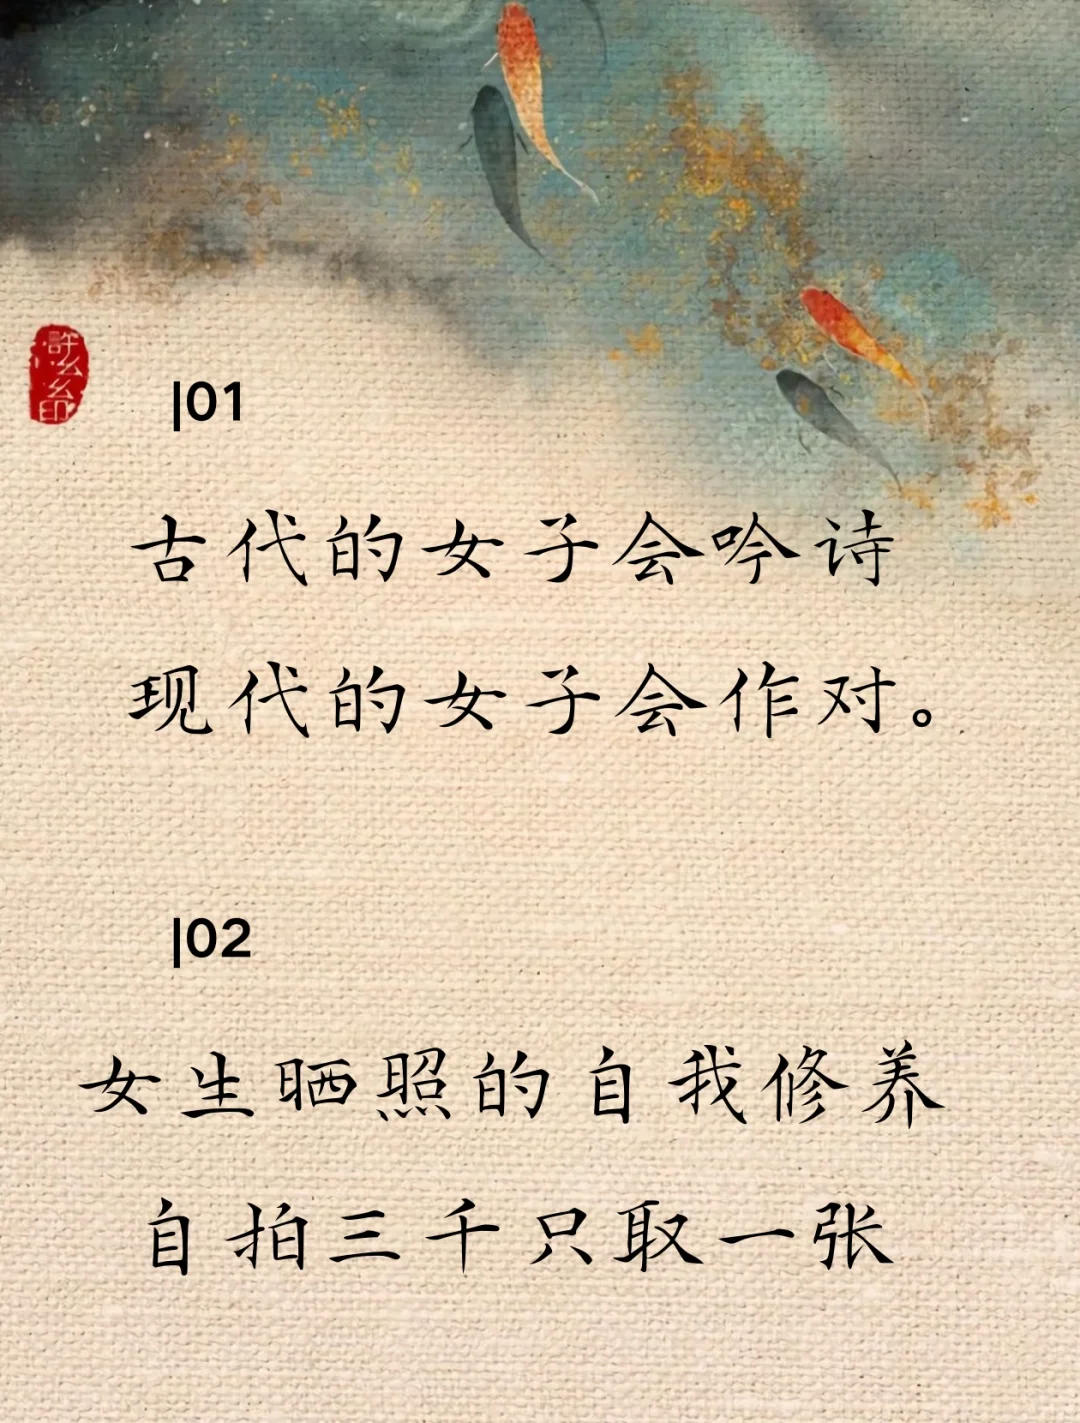 |01
古代的女子会吟诗
现代的女子会作对。
|02
女生晒照的自我修养
自拍三千只取一张